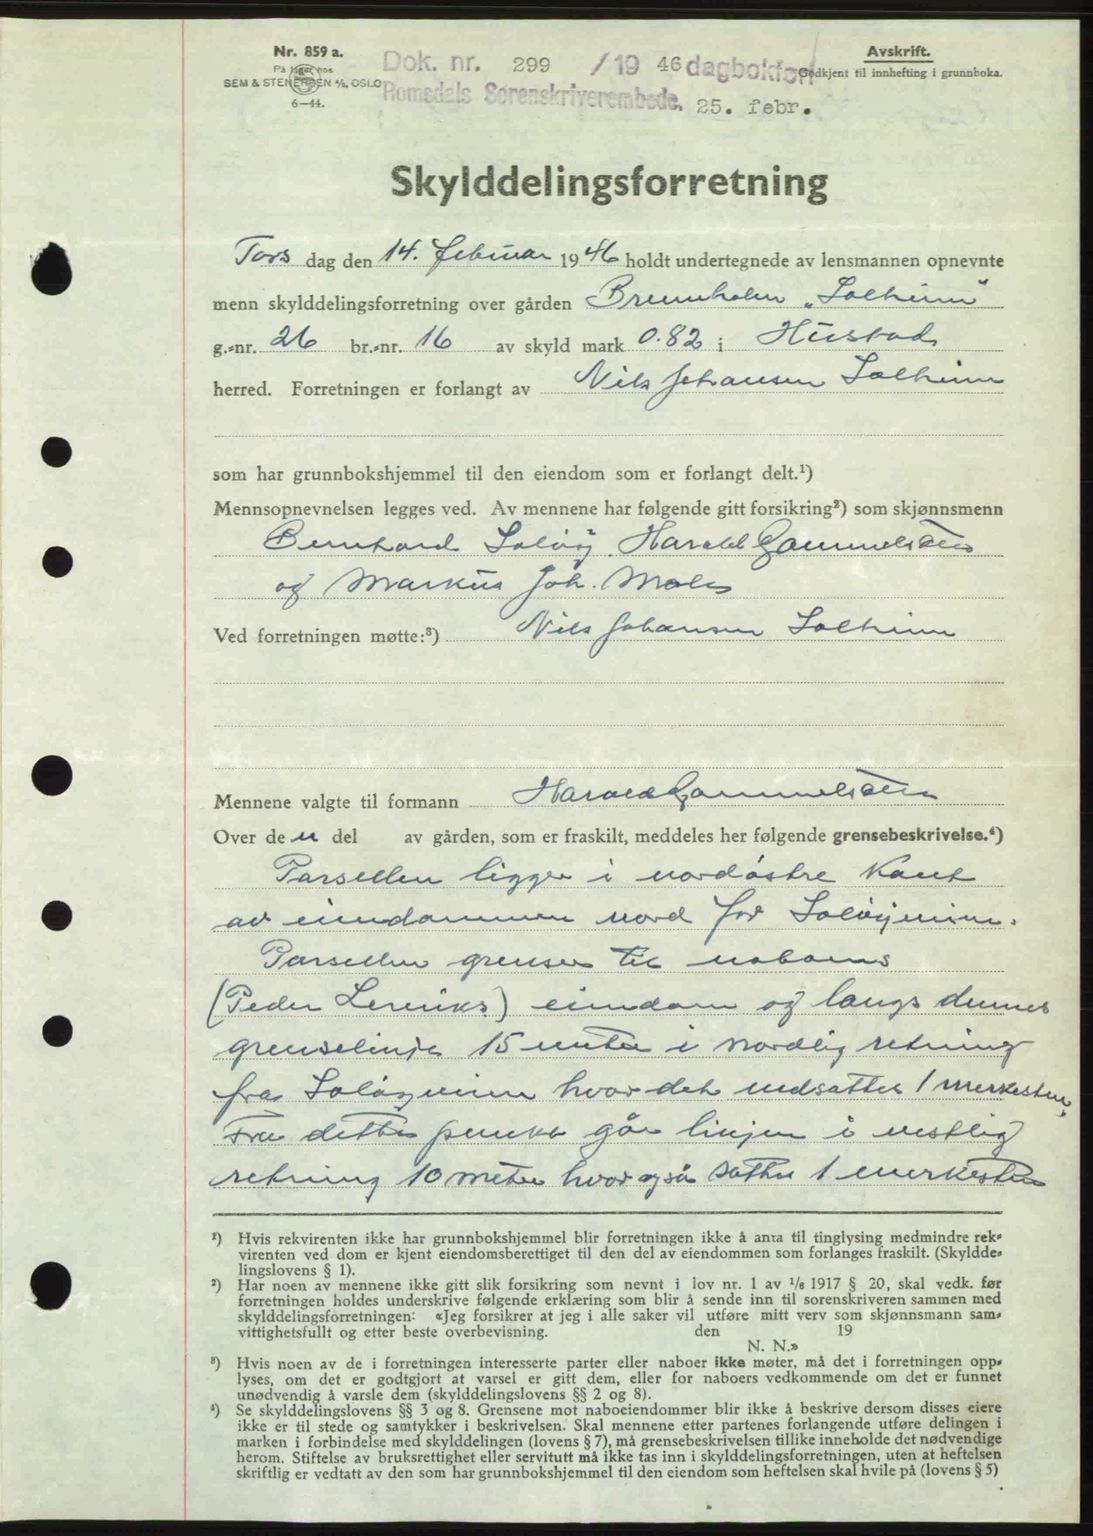 Nr. 859 a.
På lager hos
SEM & STENERSEN A/S, OSLO
6—44.
Dok. nr. 299 /19 46 dagbokført
Romsdals Sorenskriverembede. 25. febr.
Avskrift.
Godkjent til innhefting i grunnboka.
Skylddelingsforretning
Tors dag den 14. februar 1946 holdt undertegnede av lensmannen opnevnte
menn skylddelingsforretning over gården Bremholen „Solheim"
g.-nr. 26 br.-nr. 16 av skyld mark 0.82 i Hustad
herred. Forretningen er forlangt av Nils Johansen Solheim
som har grunnbokshjemmel til den eiendom som er forlangt delt.¹)
Mennsopnevnelsen legges ved. Av mennene har følgende gitt forsikring²) som skjønnsmenn
Bernhard Soløy, Harald Gammelsæter
og Markus Joh. Moles
Ved forretningen møtte:³) Nils Johansen Solheim
Mennene valgte til formann Harald Gammelsæter
Over den del av gården, som er fraskilt, meddeles her følgende grensebeskrivelse.⁴)
Parsellen ligger i nordøstre kant
av eiendommen nord for
Parsellen grenser til naboens
(Peder ) eiendom og langs dennes
grenselinje 15 meter i nordlig retning
fra hvor det nedsattes 1 merkesten,
Fra dette punkt går linjen i vestlig
retning 10 meter hvor også sattes 1 merkesten
¹) Hvis rekvirenten ikke har grunnbokshjemmel blir forretningen ikke å anta til tinglysing medmindre rek-
virenten ved dom er kjent eiendomsberettiget til den del av eiendommen som forlanges fraskilt. (Skyldde-
lingslovens § 1).
²) Har noen av mennene ikke gitt slik forsikring som nevnt i lov nr. 1 av 1/6 1917 § 20, skal vedk. før
forretningen holdes underskrive følgende erklæring som blir å sende inn til sorenskriveren sammen med
skylddelingsforretningen: «Jeg forsikrer at jeg i alle saker vil utføre mitt verv som skjønnsmann sam-
vittighetsfullt og etter beste overbevisning. den 19
N. N.»
³) Hvis noen av de i forretningen interesserte parter eller naboer ikke møter, må det i forretningen opp-
lyses, om det er godtgjort at varsel er gitt dem, eller for naboers vedkommende om det er funnet
unødvendig å varsle dem (skylddelingslovens §§ 2 og 8).
⁴) Se skylddelingslovens §§ 3 og 8. Grensene mot naboeiendommer blir ikke å beskrive dersom disses eiere
ikke er til stede og samtykker i beskrivelsen. Skal mennene etter partenes forlangende utføre delingen i
marken i forbindelse med skylddelingen (lovens § 7), må grensebeskrivelsen tillike inneholde det nødvendige
herom. Stiftelse av bruksrettighet eller servitutt må ikke tas inn i skylddelingsforretningen, uten at heftelsen
skriftlig er vedtatt av den som har grunnbokshjemmel til den eiendom som heftelsen skal hvile på (lovens § 5)